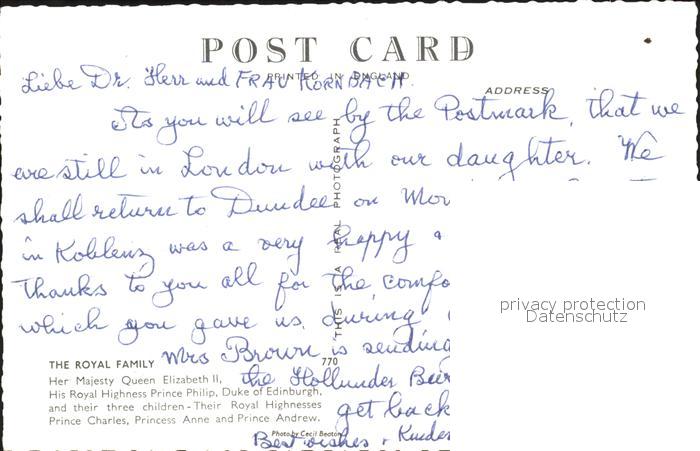 POST CARD
PRINTED IN ENGLAND
ADDRESS
Liebe Dr. Herr und FRAU KORNBACH.
As you will see by the Postmark, that we
are still in London with our daughter. We
shall return to Dundee on Mon
in Koblenz was a very happy a
Thanks to you all for the comfo
which you gave us during
Mrs Brown is sending
the Hollunder Beir
get back
Best wishes &
THIS IS A REAL PHOTOGRAPH
THE ROYAL FAMILY 770
Her Majesty Queen Elizabeth II,
His Royal Highness Prince Philip, Duke of Edinburgh,
and their three children - Their Royal Highnesses
Prince Charles, Princess Anne and Prince Andrew.
Photo by Cecil Beaton
privacy protection
Datenschutz